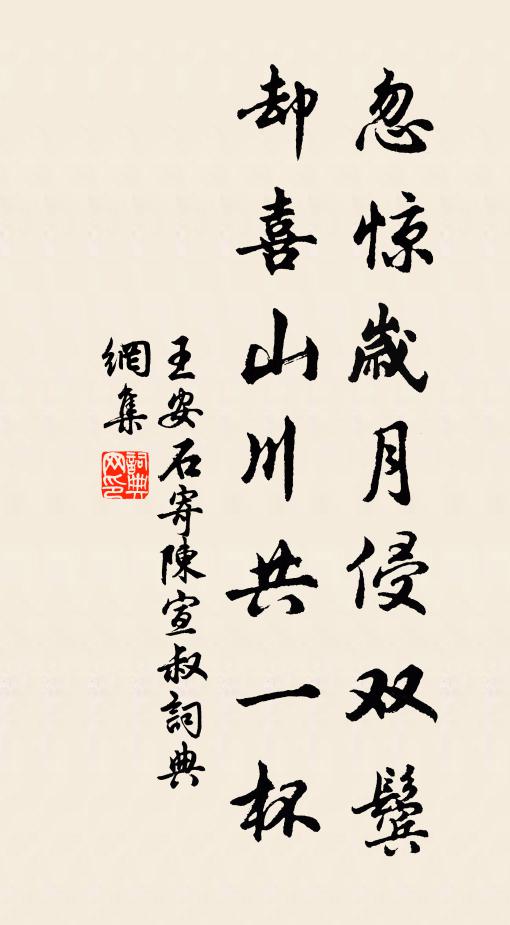 忽惊歲月侵双鬢
却喜山川共一杯
王安石寄陳宣叔詞典
網集
詞典網印